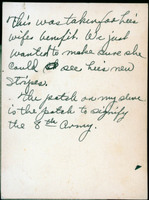 This was taken for his
wifes benefit. We just
wanted to make sure she
could see his new
Stripes.
. The patch on my sleve
is the patch to signify
the 8th Army.